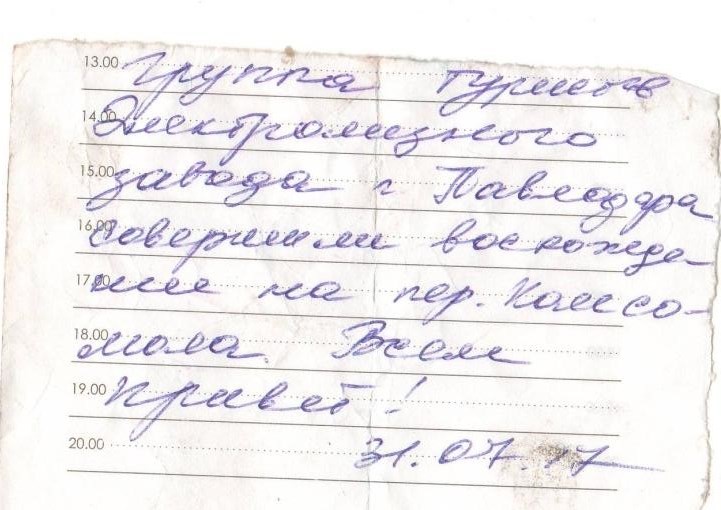 13.00 Группа туристов
14.00 Электролизного
15.00 завода г Павлодара
16.00 совершили восхожде-
17.00 ние на пер. Комсо-
18.00 мола. Всем
19.00 Привет!
20.00 31.07.17